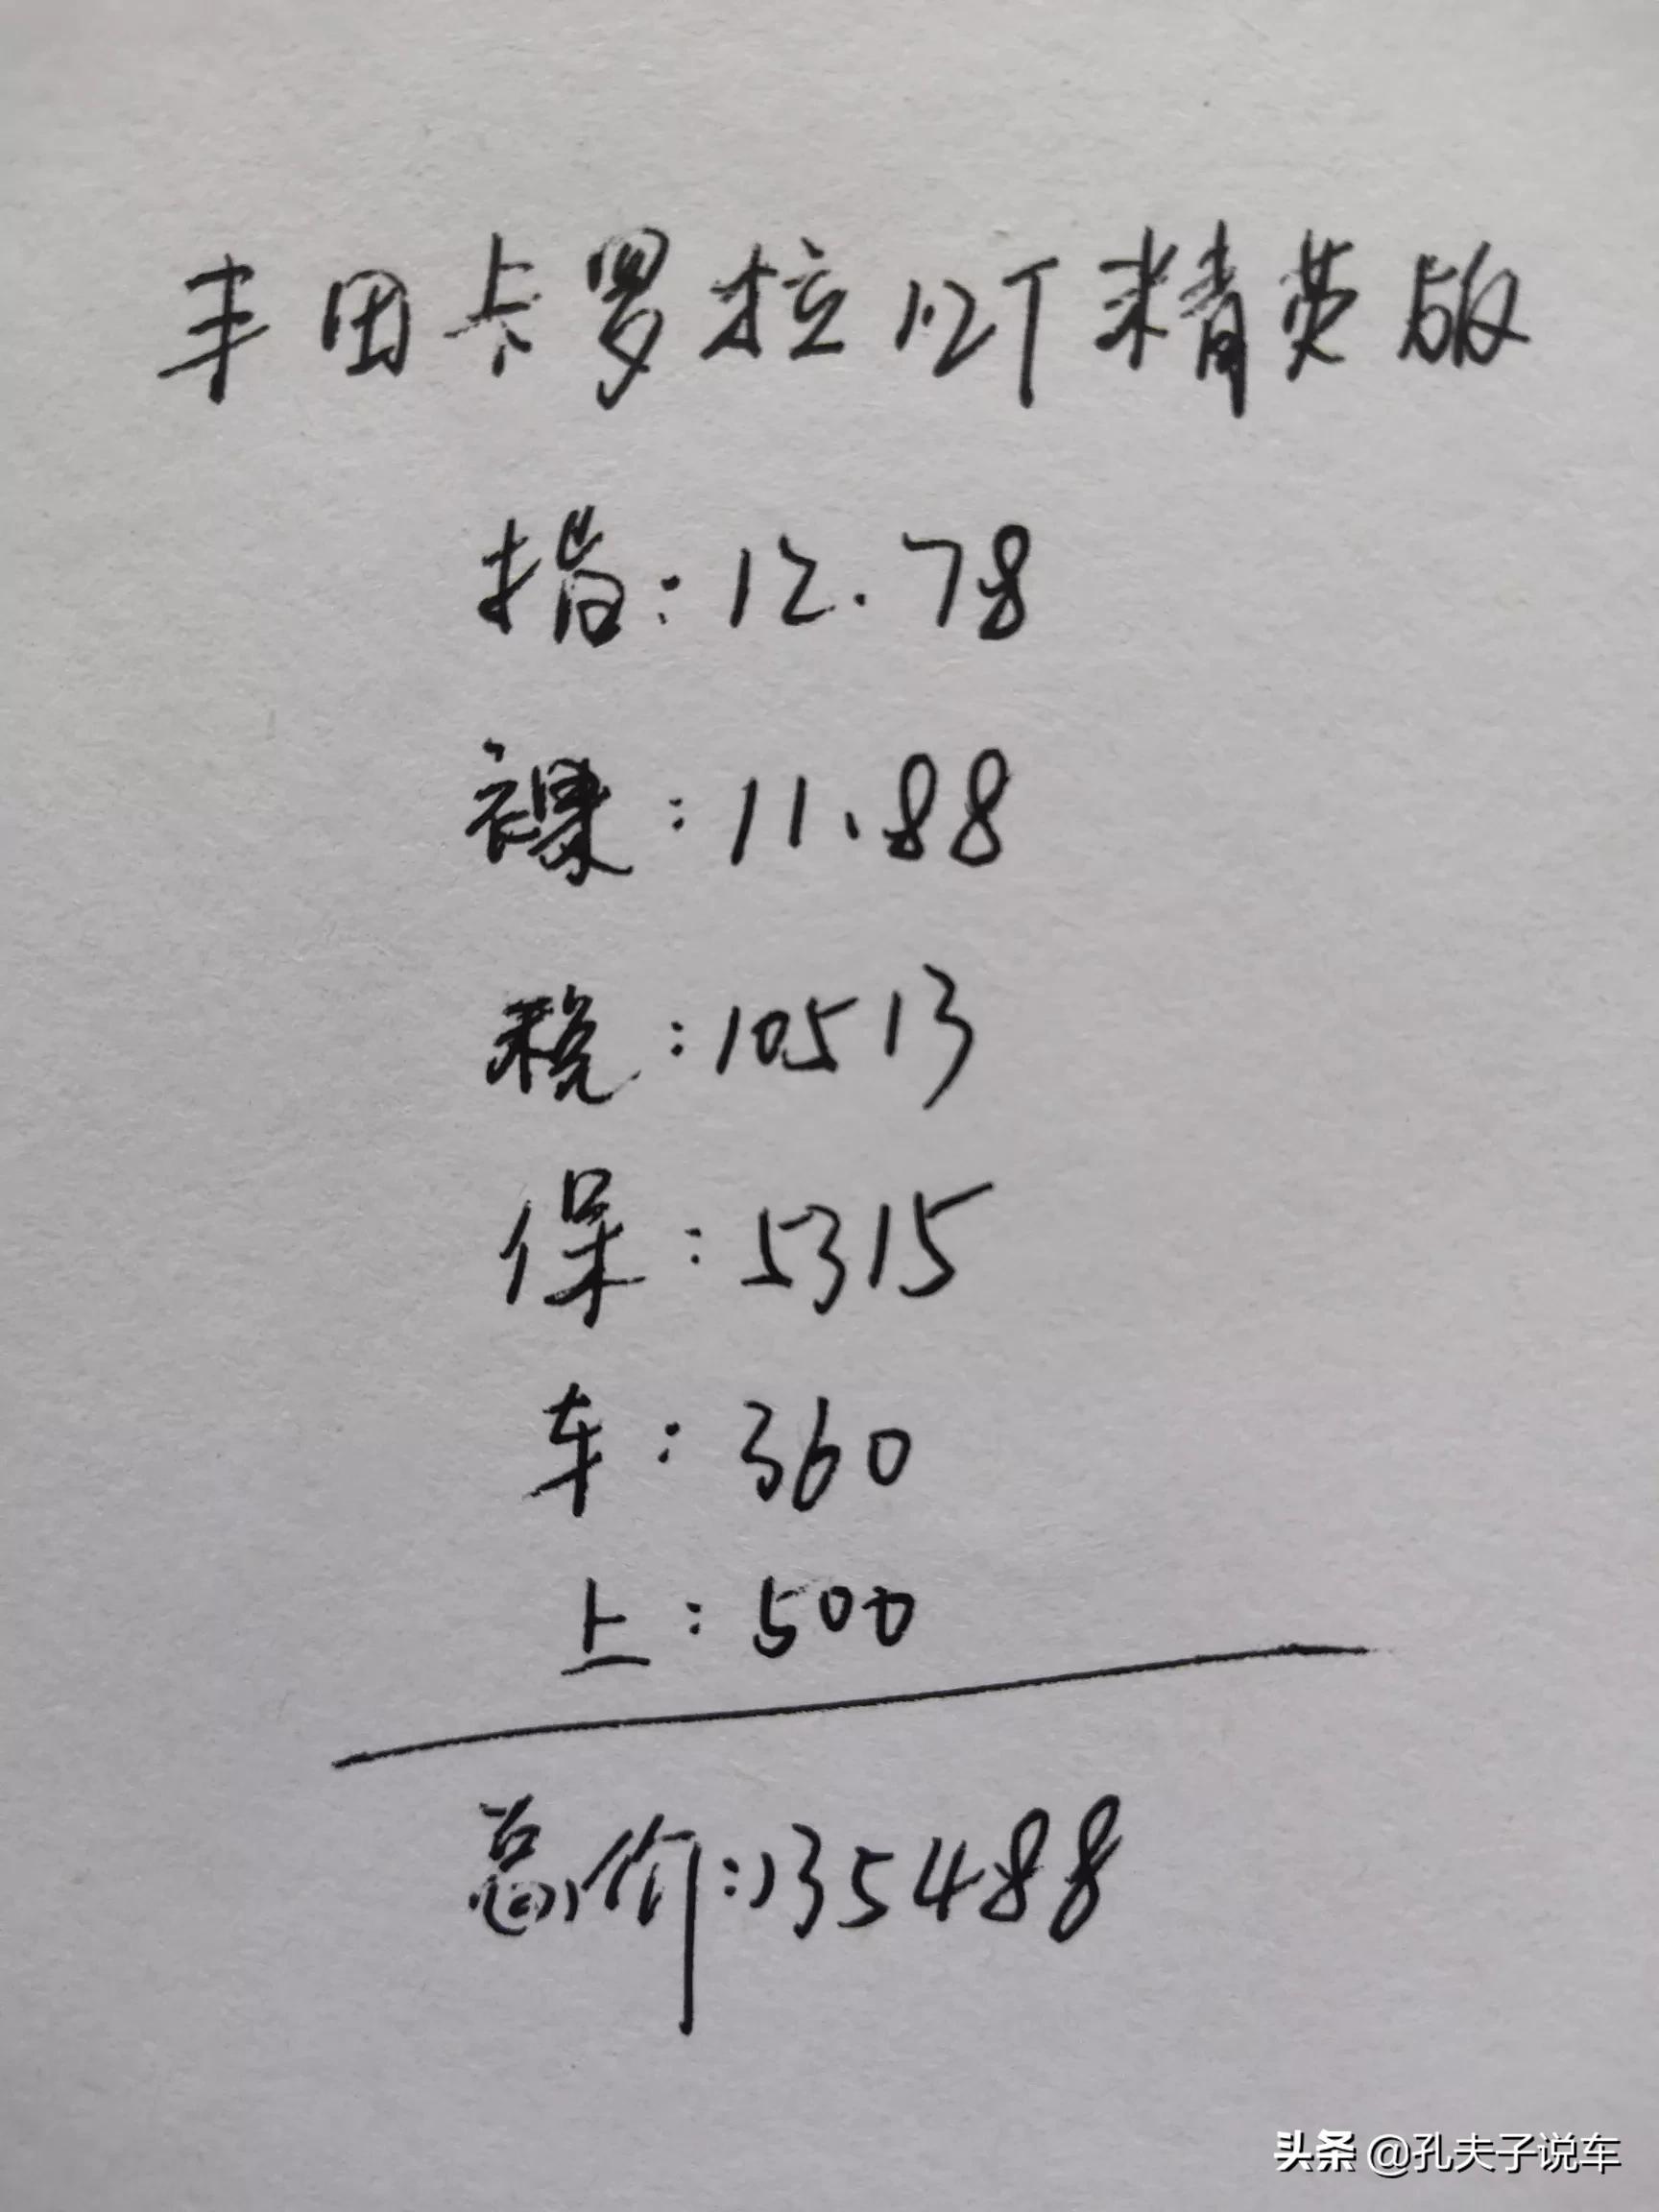 丰田卡罗拉1.2T精英版
指:12.78
裸:11.88
税:10513
保:5315
车:360
上:500
总价:135488
头条 @孔夫子说车